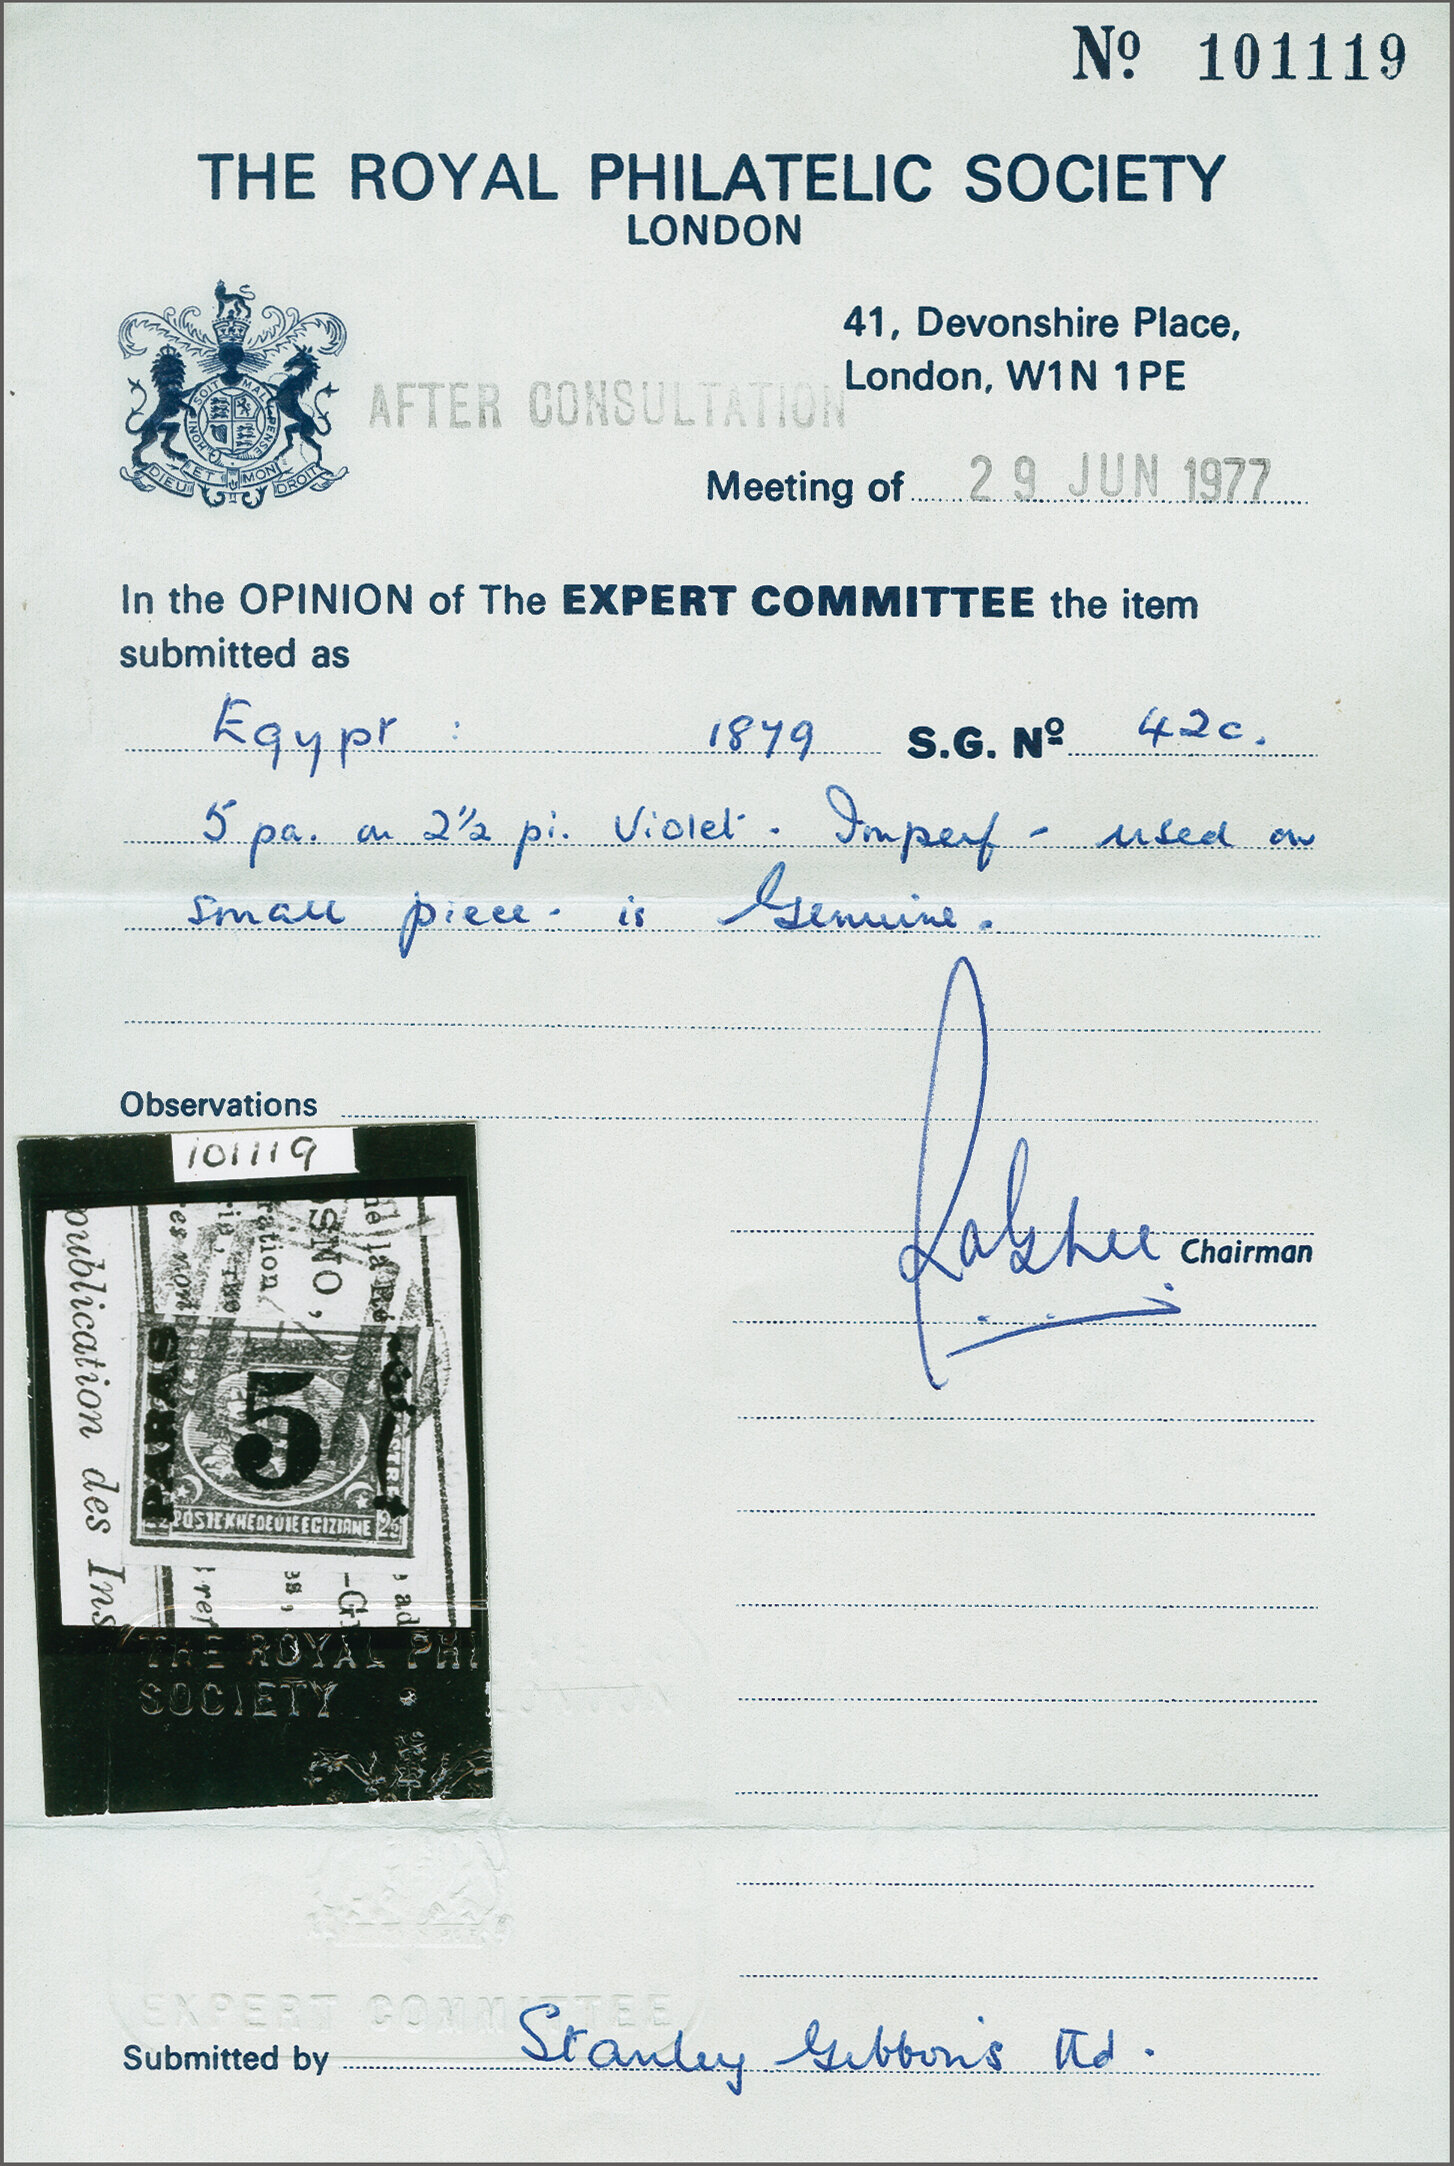 Nº 101119
THE ROYAL PHILATELIC SOCIETY
LONDON
41, Devonshire Place,
London, W1N 1PE
SOIT MAL PENSE
HONI
DIEU ET MON DROIT
AFTER CONSULTATION
Meeting of 29 JUN 1977
In the OPINION of The EXPERT COMMITTEE the item
submitted as
Egypt : 1879 S.G. Nº 42c.
5 pa. on 2½ pi. Violet. Imperf - used on
small piece - is Genuine.
Observations
101119
publication des Ins
ration
OSNO,
PARAS
5
POSTE KHEDEUIE EGIZIANE 2½
THE ROYAL PHI
SOCIETY
Chairman
EXPERT COMMITTEE
Submitted by Stanley Gibbons Ltd.